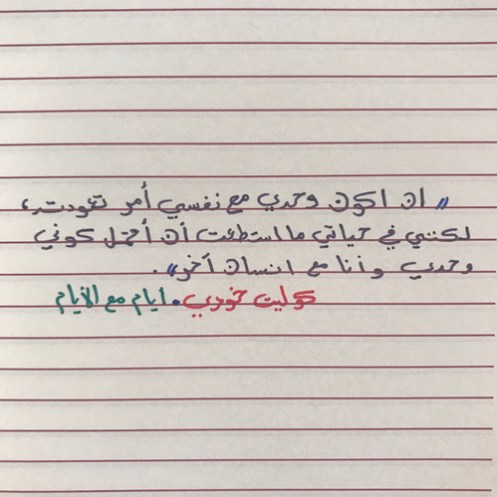 " ان اكون وحدي مع نفسي أمر تعودته،
لكنني في حياتي ما استطعت أن أحتمل كوني
وحدي وأنا مع انسان آخر".
كوليت خوري. أيام مع الأيام